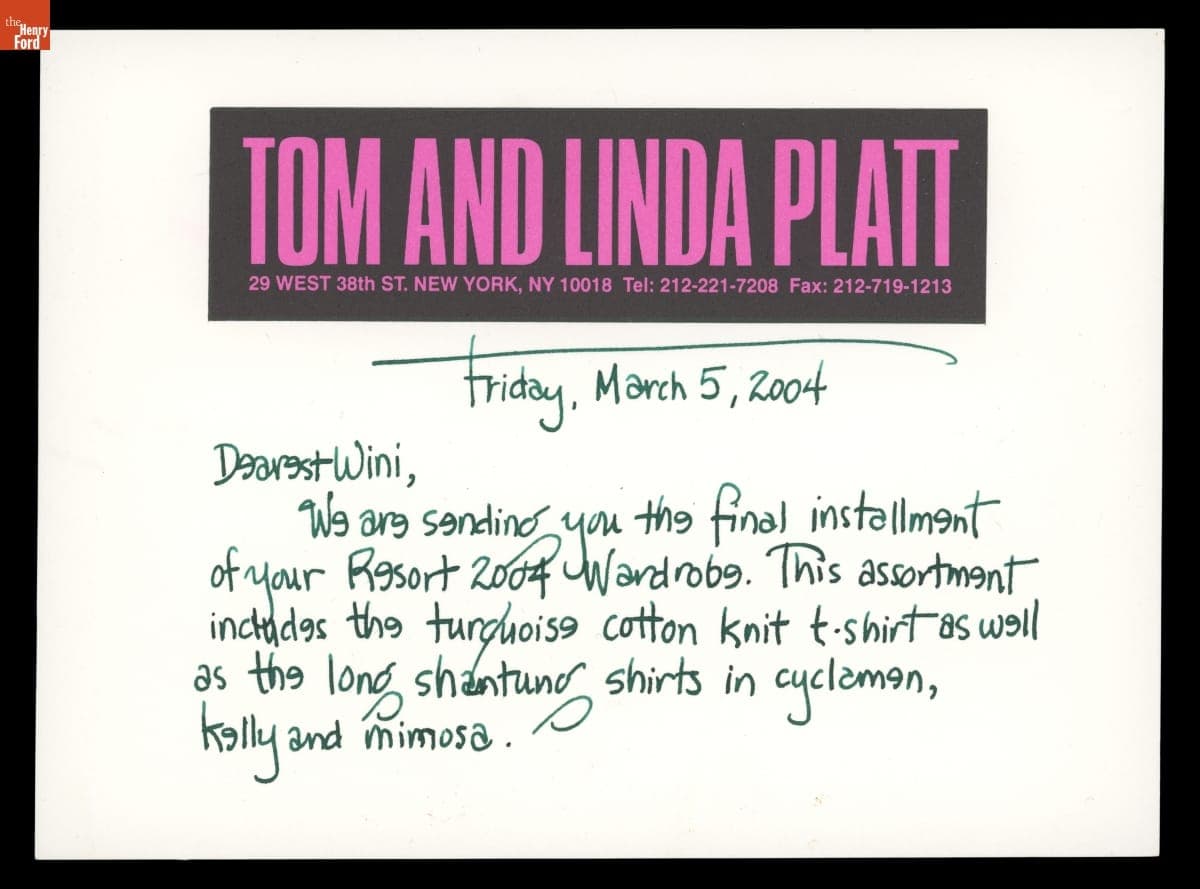 the
Henry
Ford
TOM AND LINDA PLATT
29 WEST 38th ST. NEW YORK, NY 10018 Tel: 212-221-7208 Fax: 212-719-1213
Friday, March 5, 2004
Dearest Wini,
We are sending you the final installment
of your Resort 2004 Wardrobe. This assortment
includes the turquoise cotton knit t-shirt as well
as the long shantung shirts in cyclamen,
kelly and mimosa.